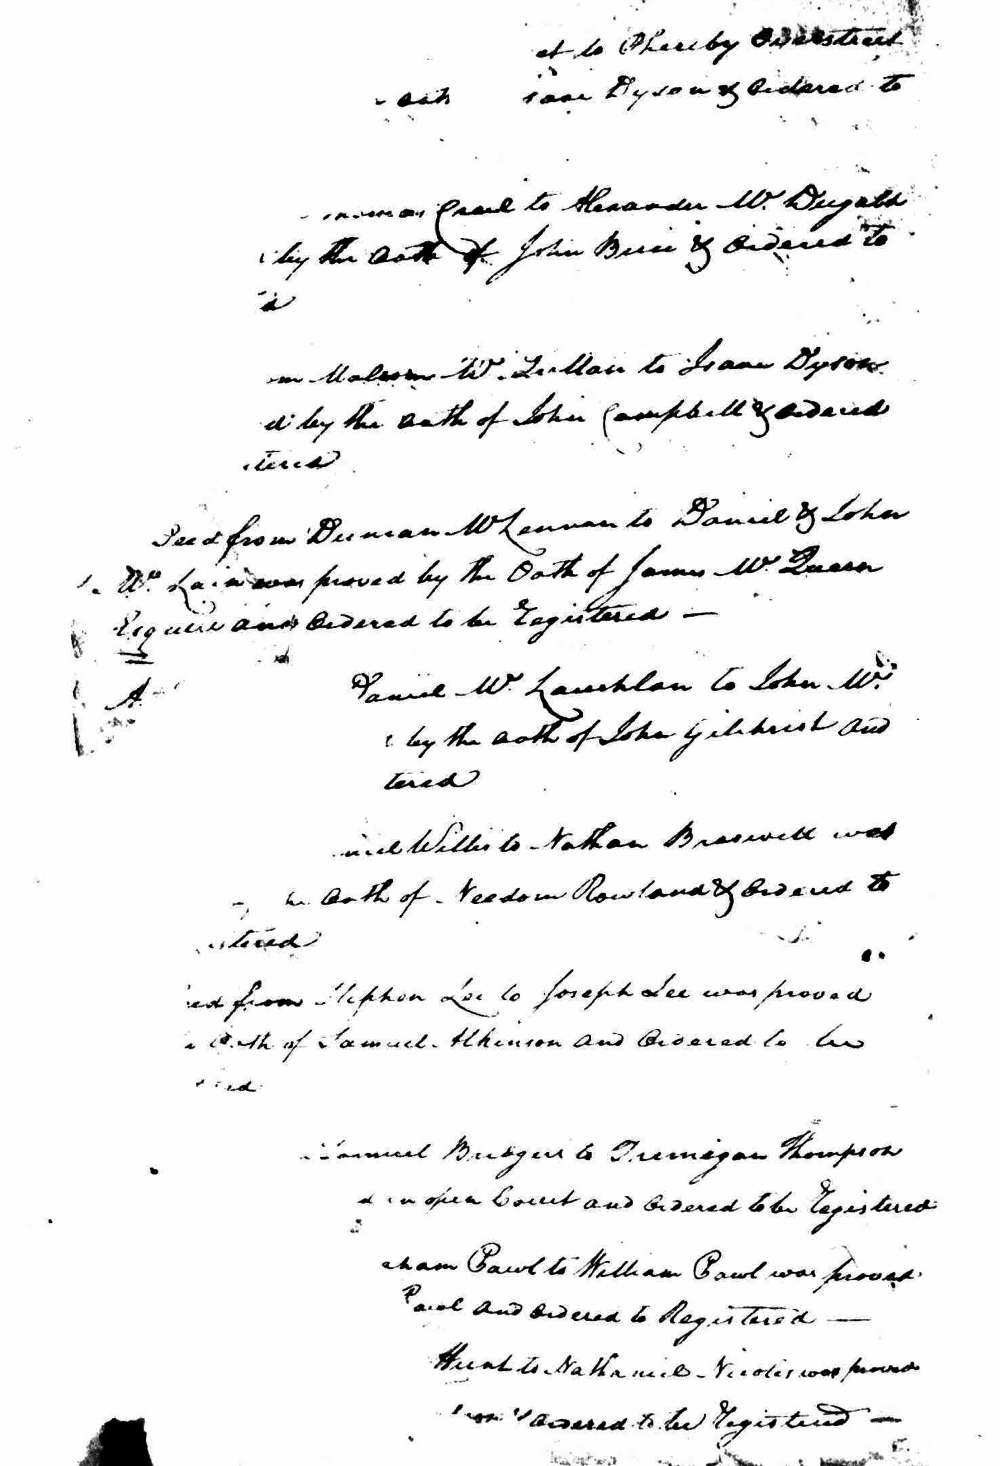 et to Phereby Overstreet
oath Isaac Dyson & Ordered to
Thomas Crail to Alexander Mc. Dugald
by the Oath of John Brice & Ordered to
d
om Malcom Mc. Lellan to Isaac Dyson
d by the Oath of John Campbell & Ordered
tered
Deed from Duncan McLennan to Daniel & John
Mc. Lain was proved by the Oath of James Mc. Quean
Esquire and Ordered to be Registered —
A Daniel Mc. Lauchlan to John Mc.
by the Oath of John Gilchrist and
tered
niel Willis to Nathan Braswell was
Oath of Needom Rowland & Ordered to
stered
ed from Stephen Lee to Joseph Lee was proved
Oath of Samuel Atkinson and Ordered to be
ed
Samuel Bridgers to Trimigan Thompson
d in open Court and Ordered to be Registered
cham Pawl to William Pawl was proved
Pawl and Ordered to Registered —
Hunt to Nathaniel Nicoles was proved
Ordered to be Registered —